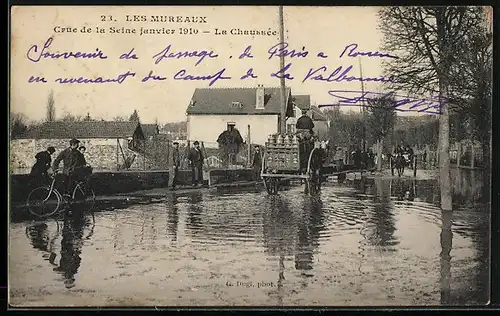 23. LES MUREAUX
Crue de la Seine janvier 1910 - La Chaussée
Souvenir de passage de Paris a Rouen
en revenant du Camp de La Valbonne
G. Dugé, phot.